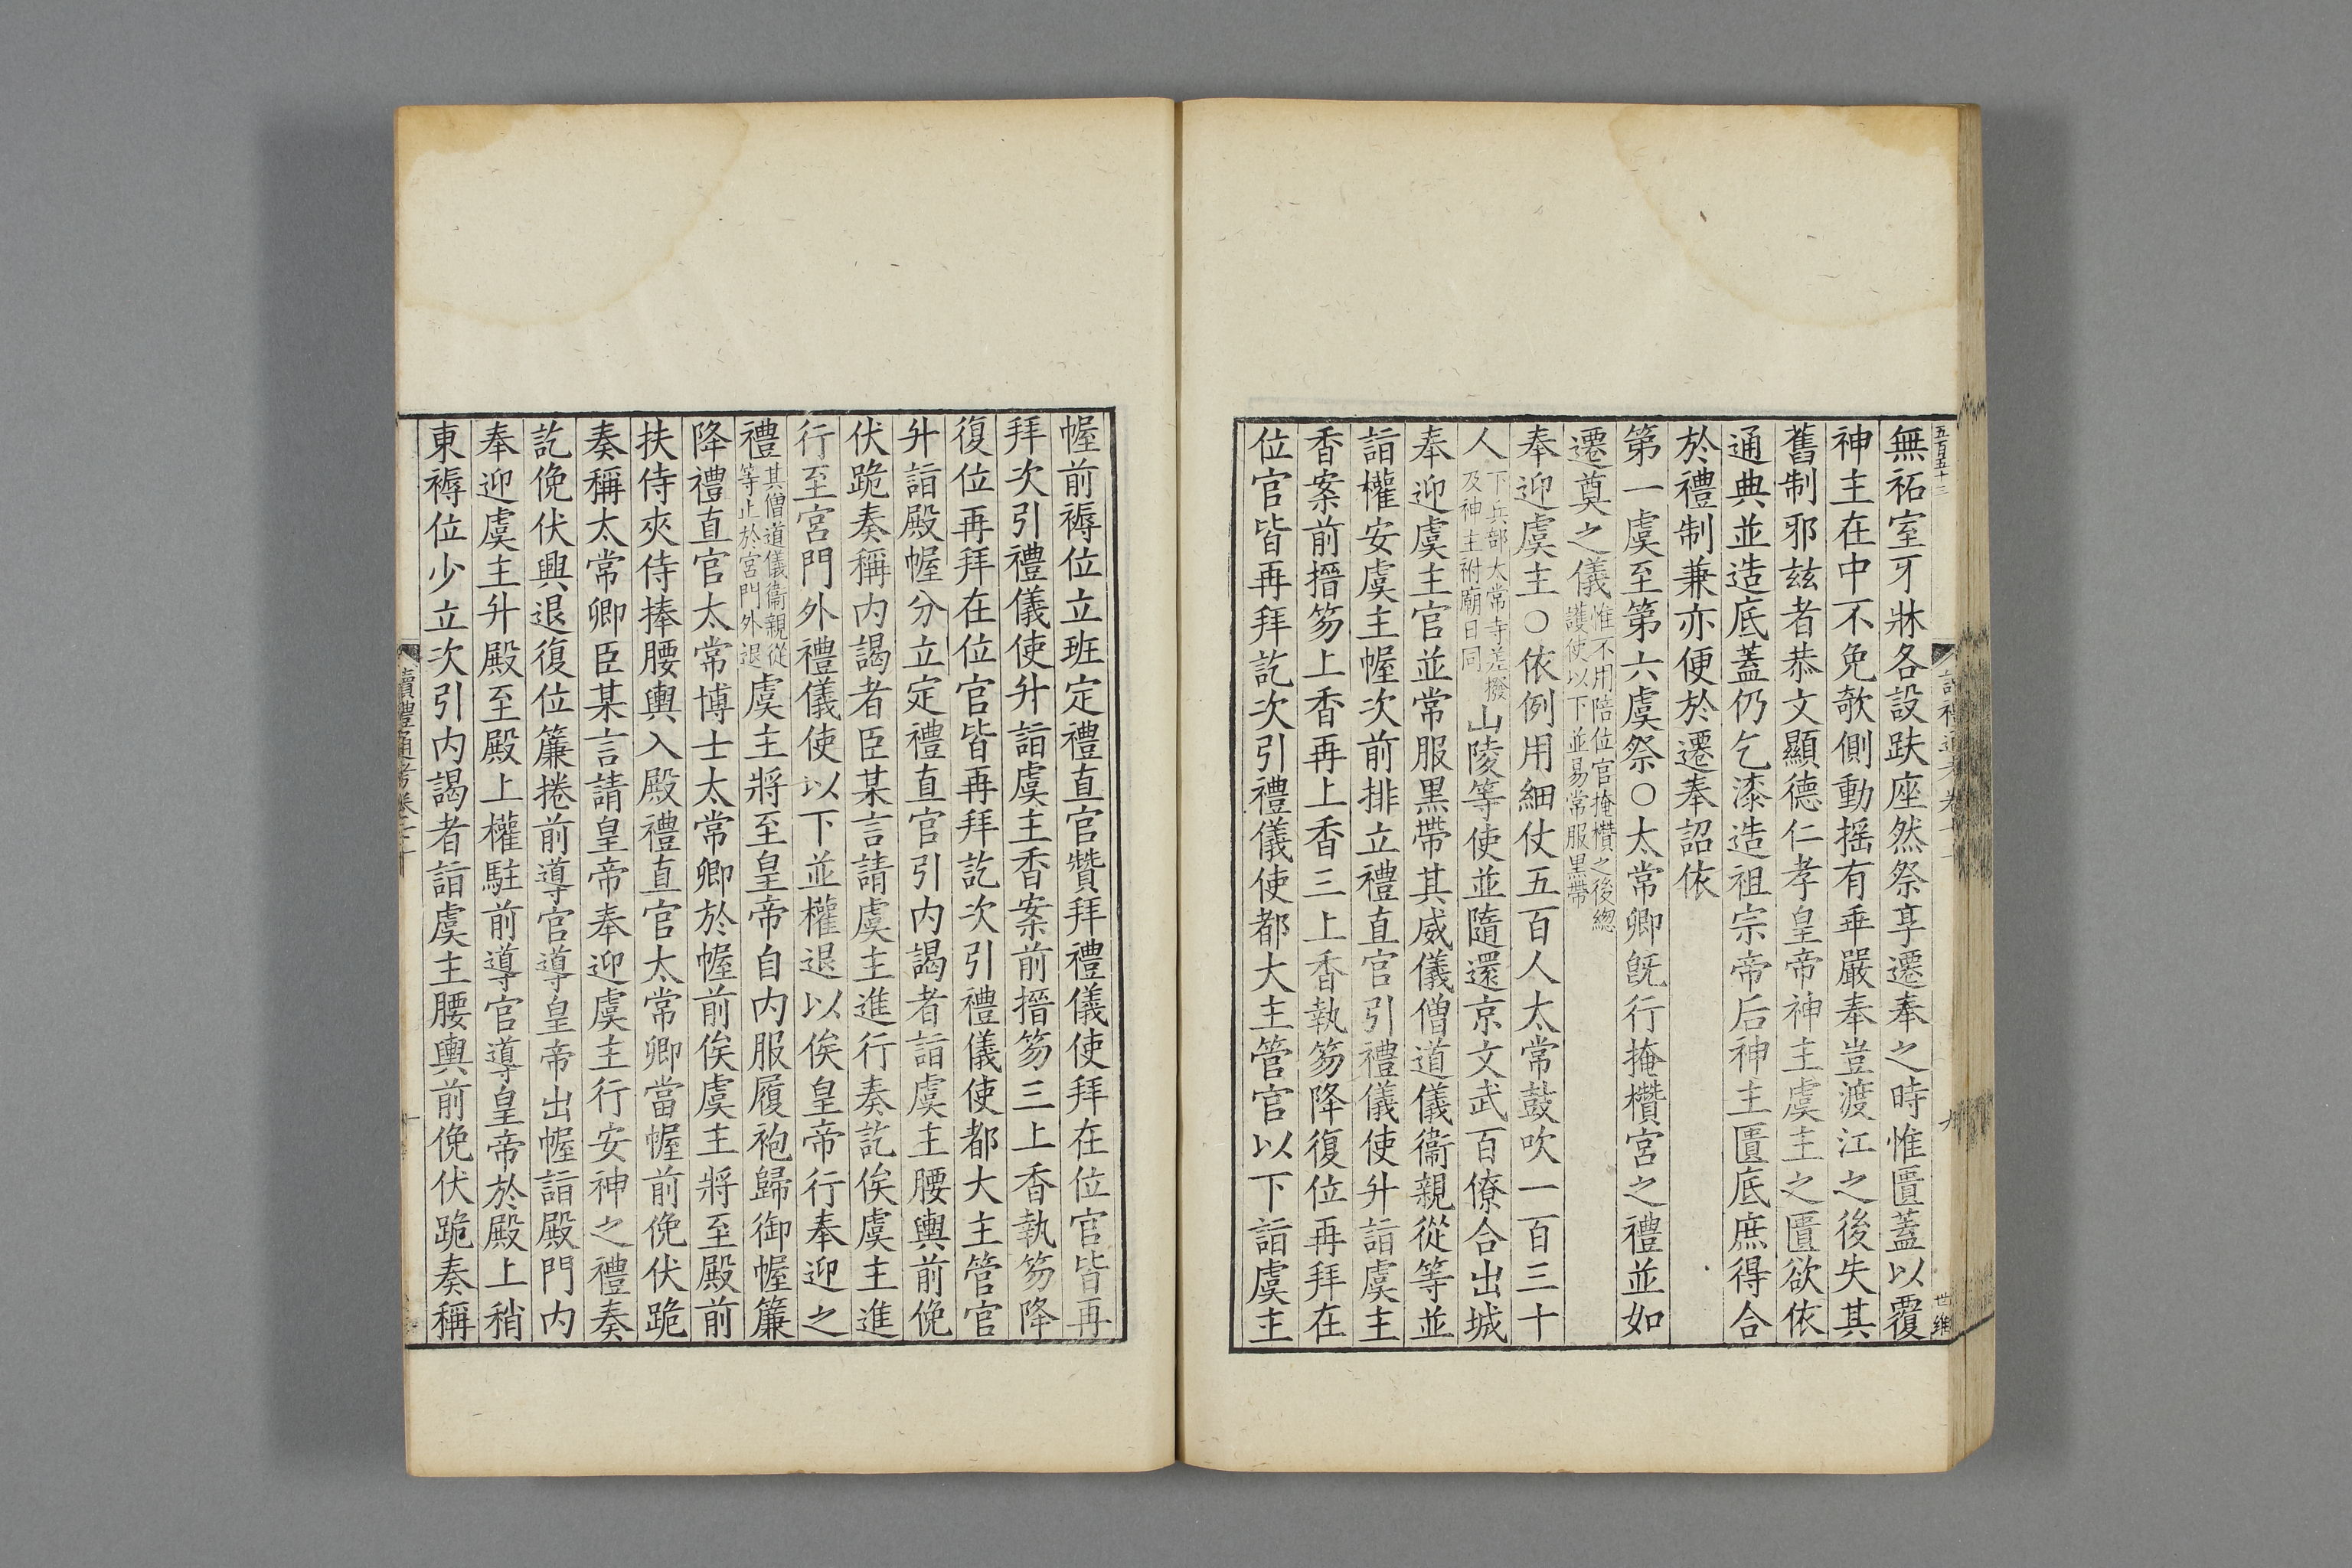 五百五十三
無祏室牙牀各設趺座然祭享遷奉之時惟匱蓋以覆
神主在中不免欹側動揺有乖嚴奉豈渡江之後失其
舊制邪玆者恭文顯德仁孝皇帝神主虞主之匱欲依
通典並造底蓋仍乞漆造祖宗帝后神主匱底庶得合
於禮制兼亦便於遷奉詔依
第一虞至第六虞祭○太常卿旣行掩欑宮之禮並如
遷奠之儀惟不用陪位官掩欑之後緫
護使以下並易常服黑帶
奉迎虞主○依例用細仗五百人太常鼓吹一百三十
人下兵部太常寺差撥
及神主祔廟日同山陵等使並隨還京文武百僚合出城
奉迎虞主官並常服黑帶其威儀僧道儀衞親從等並
詣權安虞主幄次前排立禮直官引禮儀使升詣虞主
香案前搢笏上香再上香三上香執笏降復位再拜在
位官皆再拜訖次引禮儀使都大主管官以下詣虞主
世維
幄前褥位立班定禮直官贊拜禮儀使拜在位官皆再
拜次引禮儀使升詣虞主香案前搢笏三上香執笏降
復位再拜在位官皆再拜訖次引禮儀使都大主管官
升詣殿幄分立定禮直官引内謁者詣虞主腰輿前俛
伏跪奏稱内謁者臣某言請虞主進行奏訖俟虞主進
行至宮門外禮儀使以下並權退以俟皇帝行奉迎之
禮其僧道儀衞親從
等止於宮門外退虞主將至皇帝自内服履袍歸御幄簾
降禮直官太常博士太常卿於幄前俟虞主將至殿前
扶侍夾侍捧腰輿入殿禮直官太常卿當幄前俛伏跪
奏稱太常卿臣某言請皇帝奉迎虞主行安神之禮奏
訖俛伏興退復位簾捲前導官導皇帝出幄詣殿門内
奉迎虞主升殿至殿上權駐前導官導皇帝於殿上稍
東褥位少立次引内謁者詣虞主腰輿前俛伏跪奏稱
讀禮通考卷